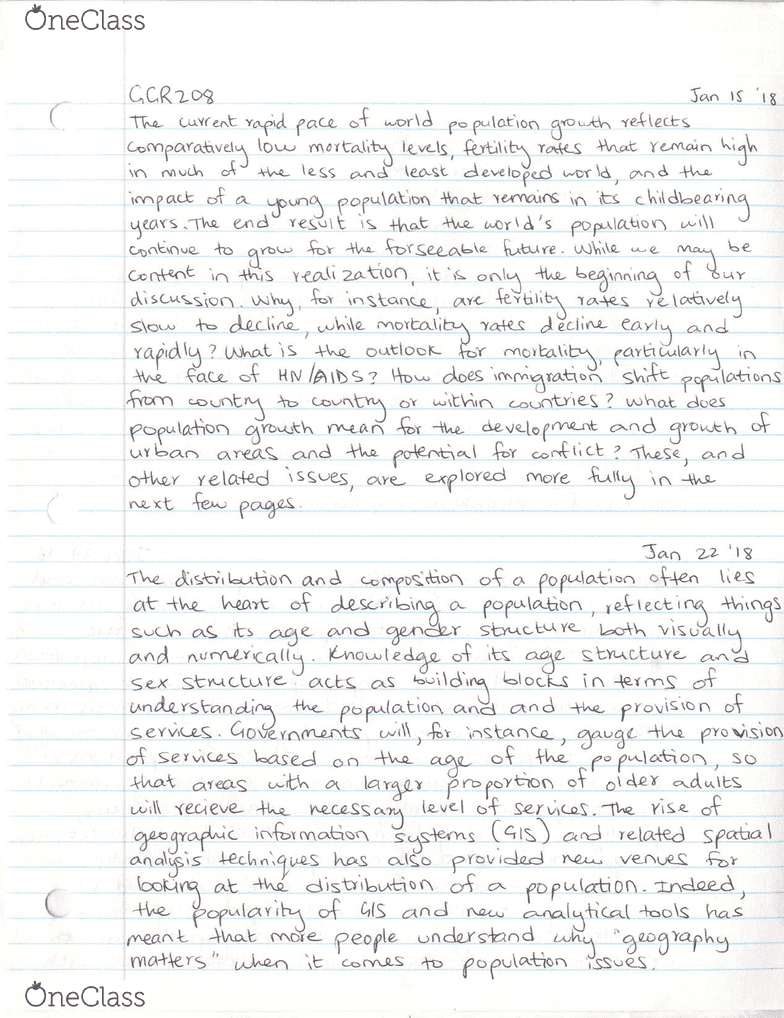 OneClass
GGR208 Jan 15 '18
The current rapid pace of world population growth reflects
comparatively low mortality levels, fertility rates that remain high
in much of the less and least developed world, and the
impact of a young population that remains in its childbearing
years. The end result is that the world's population will
continue to grow for the forseeable future. While we may be
content in this realization, it is only the beginning of our
discussion. Why, for instance, are fertility rates relatively
slow to decline, while mortality rates decline early and
rapidly? What is the outlook for mortality, particularly in
the face of HIV/AIDS? How does immigration shift populations
from country to country or within countries? What does
population growth mean for the development and growth of
urban areas and the potential for conflict? These, and
other related issues, are explored more fully in the
next few pages.
Jan 22 '18
The distribution and composition of a population often lies
at the heart of describing a population, reflecting things
such as its age and gender structure both visually
and numerically. Knowledge of its age structure and
sex structure acts as building blocks in terms of
understanding the population and and the provision of
services. Governments will, for instance, gauge the provision
of services based on the age of the population, so
that areas with a larger proportion of older adults
will recieve the necessary level of services. The rise of
geographic information systems (GIS) and related spatial
analysis techniques has also provided new venues for
looking at the distribution of a population. Indeed,
the popularity of GIS and new analytical tools has
meant that more people understand why "geography
matters" when it comes to population issues.
OneClass